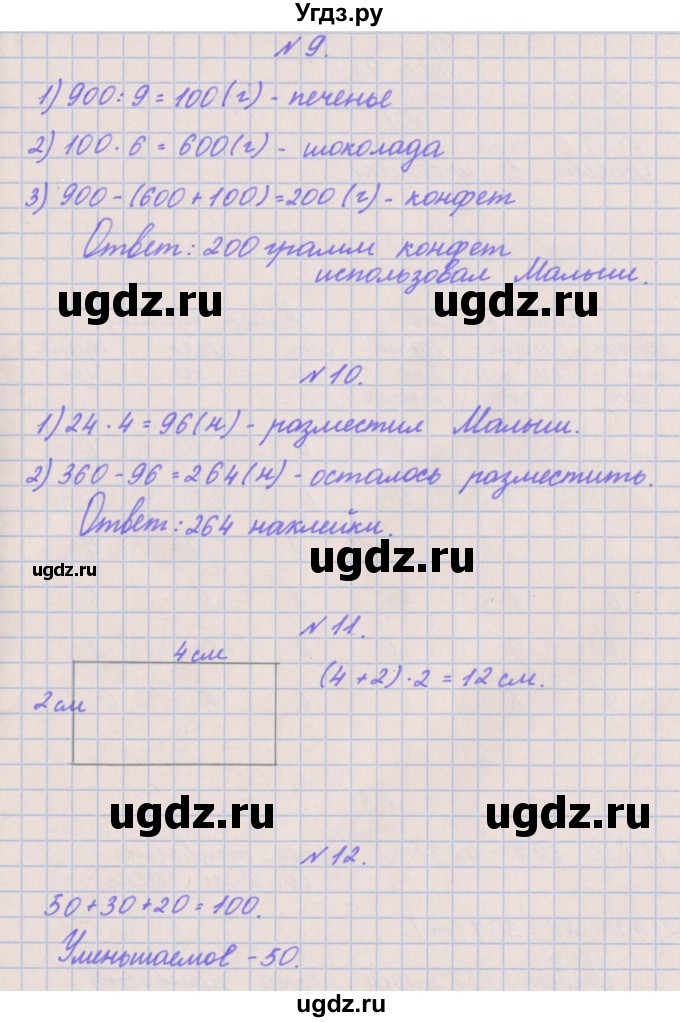 Угдз.ру
№ 9.
1) 900 : 9 = 100 (г) - печенье
2) 100 · 6 = 600 (г) - шоколада
3) 900 - (600 + 100) = 200 (г) - конфет
Ответ: 200 грамм конфет
использовал Малыш.
ugdz.ru ugdz.ru
№ 10.
1) 24 · 4 = 96 (н) - разместил Малыш.
2) 360 - 96 = 264 (н) - осталось разместить.
Ответ: 264 наклейки.
ugdz.ru ugdz.ru
№ 11.
4 см
(4 + 2) · 2 = 12 см.
2 см
ugdz.ru ugdz.ru
№ 12.
50 + 30 + 20 = 100.
Уменьшаемов - 50.
ugdz.ru
ugdz.ru